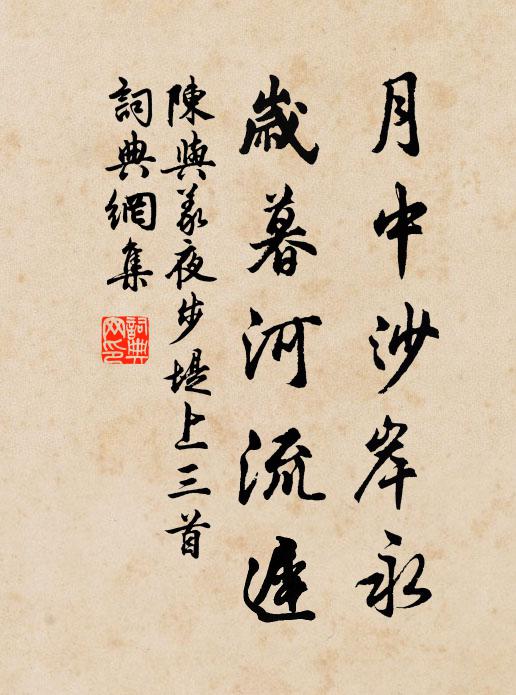 月中沙岸永
歲暮河流遲
陳與義夜步堤上三首
詞典網集
詞典網印